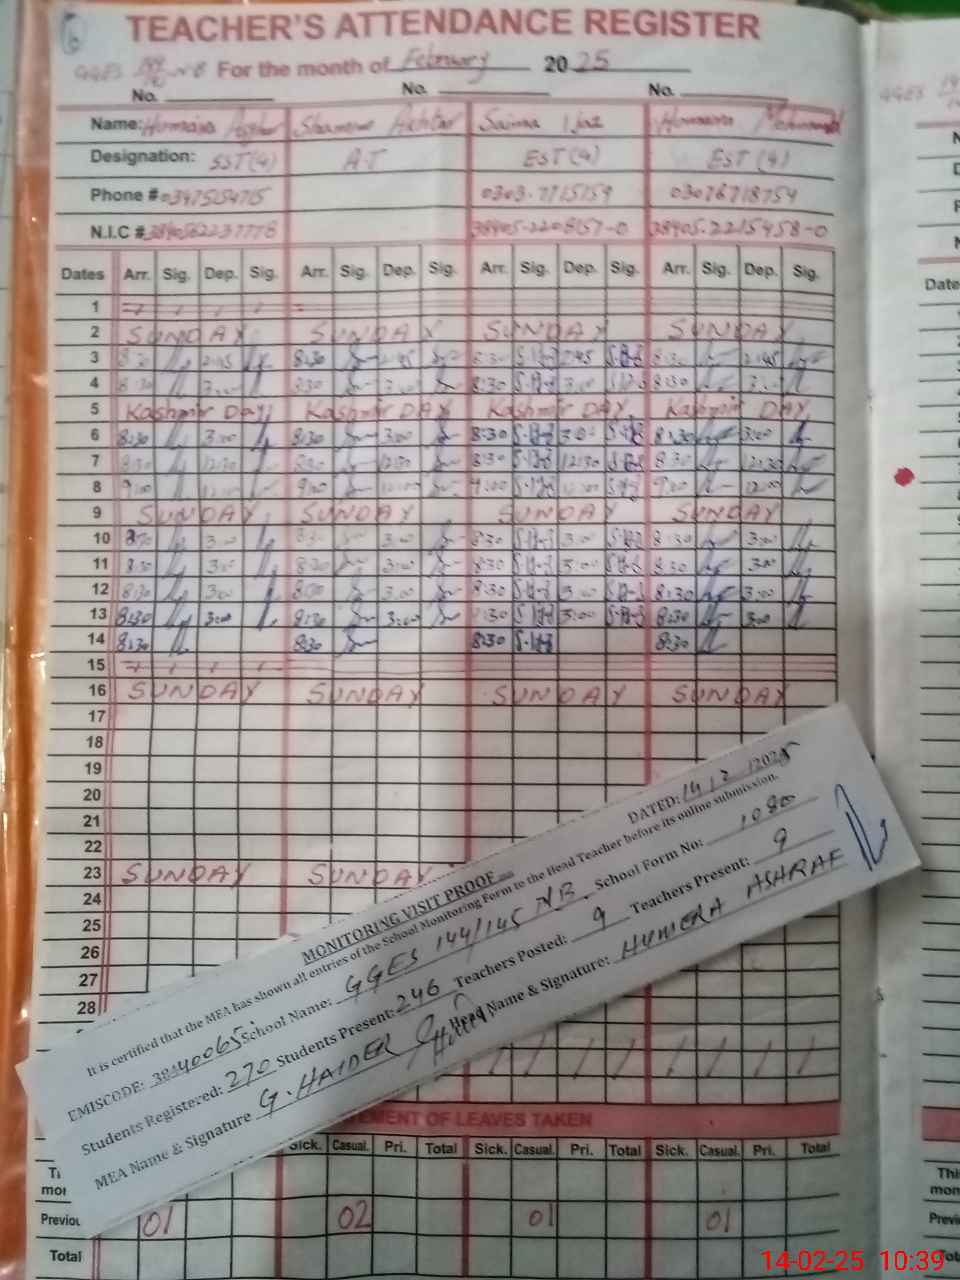 6
TEACHER'S ATTENDANCE REGISTER
GGES 144/145 NB For the month of February 2025
No. No. No.
Name: Humaira Asghar Shamim Akhtar Saima Ijaz Humaira Mehmood
Designation: SST(4) AT EST (4) EST (4)
Phone # 03475154715 0303.7715759 03076718754
N.I.C # 3840562237778 38405-2208157-0 38405.2215458-0
Dates Arr. Sig. Dep. Sig. Arr. Sig. Dep. Sig. Arr. Sig. Dep. Sig. Arr. Sig. Dep. Sig.
1
2 SUNDAY SUNDAY SUNDAY SUNDAY
3 8:30 2:45 8:30 2:45 8:30 2:45 8:30 2:45
4 8:30 3:00 8:30 3:00 8:30 3:00 8:30 3:00
5 Kashmir DAY Kashmir DAY Kashmir DAY Kashmir DAY
6 8:30 3:00 8:30 3:00 8:30 3:00 8:30 3:00
7 8:30 12:30 8:30 12:30 8:30 12:30 8:30 12:30
8 9:00 12:00 9:00 12:00 9:00 12:00 9:00 12:00
9 SUNDAY SUNDAY SUNDAY SUNDAY
10 8:30 3:00 8:30 3:00 8:30 3:00 8:30 3:00
11 8:30 3:00 8:30 3:00 8:30 3:00 8:30 3:00
12 8:30 3:00 8:30 3:00 8:30 3:00 8:30 3:00
13 8:30 3:00 8:30 3:00 8:30 3:00 8:30 3:00
14 8:30 8:30 8:30 8:30
15
16 SUNDAY SUNDAY SUNDAY SUNDAY
17
18
19
20
21
22
23 SUNDAY SUNDAY
24
25
26
27
28
MONITORING VISIT PROOF DATED: 14/2/2025
It is certified that the MEA has shown all entries of the School Monitoring Form to the Head Teacher before its online submission.
EMISCODE: 38440065 School Name: GGES 144/145 NB School Form No: 1080
Students Registered: 270 Students Present: 246 Teachers Posted: 9 Teachers Present: 9
MEA Name & Signature G. HAIDER Head Name & Signature: HUMERA ASHRAF
EMENT OF LEAVES TAKEN
Sick. Casual. Pri. Total Sick. Casual. Pri. Total Sick. Casual. Pri. Total
Previou 01 02 01 01
Total
14-02-25 10:39